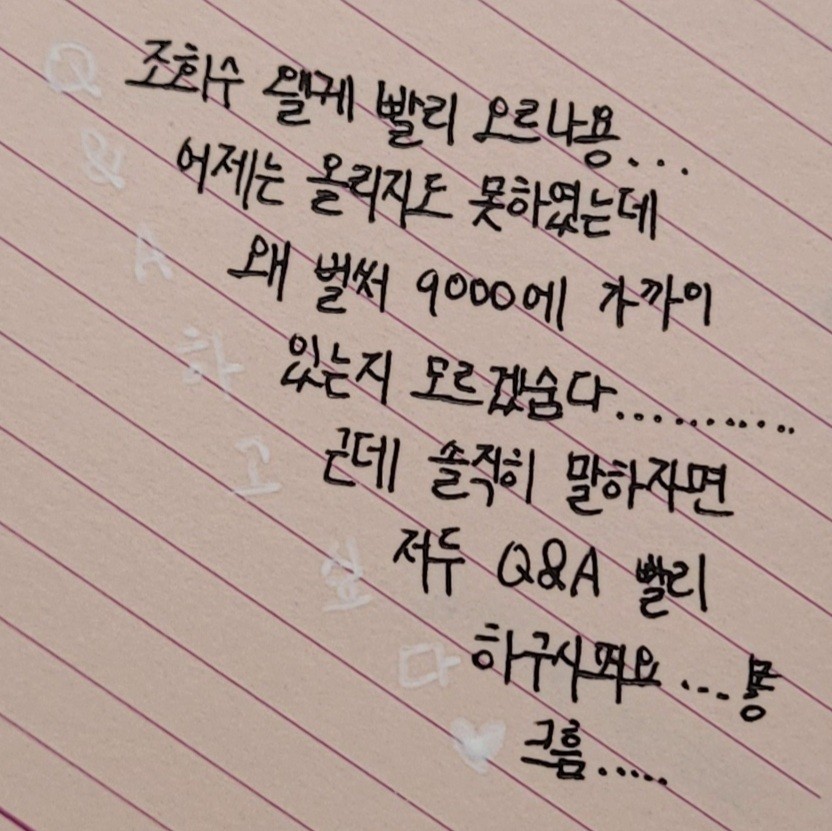 Q 조회수 왤케 빨리 오르나용...
& 어제는 올리지도 못하였는데
A 왜 벌써 9000에 가까이
하 있는지 모르겠슴다...........
고 근데 솔직히 말하자면
싶 저두 Q&A 빨리
다 하구시퍼요...뿅
♥ 그흠.....